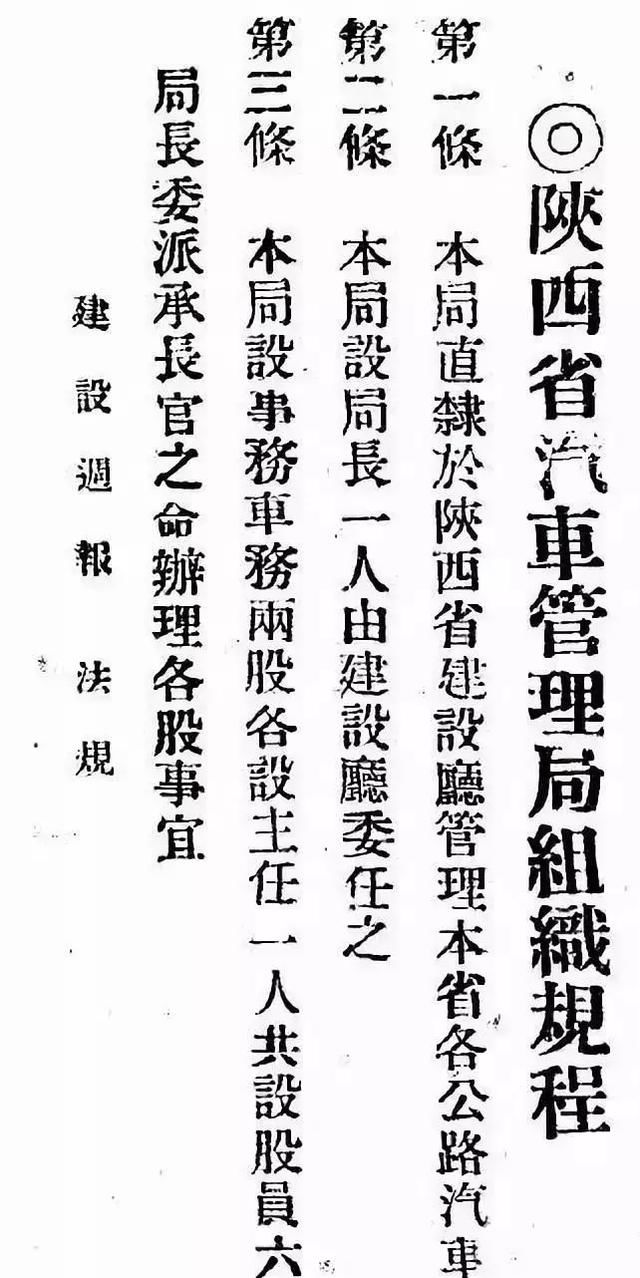 ◎陝西省汽車管理局組織規程
第一條 本局直隸於陝西省建設廳管理本省各公路汽車
第二條 本局設局長一人由建設廳委任之
第三條 本局設事務車務兩股各設主任一人共設股員六
局長委派承長官之命辦理各股事宜
建設週報 法規